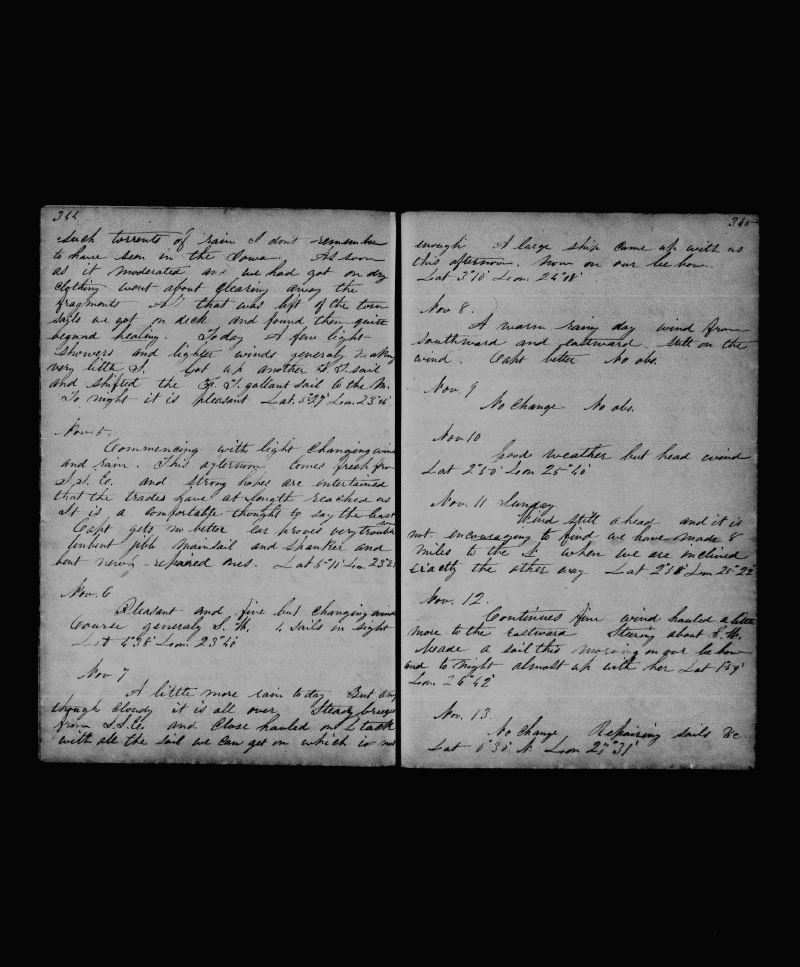 344
such torrents of rain I dont remember
to have seen in the Iowa. As soon
as it moderated and we had got on dry
clothing went about clearing away the
fragments All that was left of the torn
sails we got on deck and found them quite
beyond healing. Today A few light
showers and lighter winds generaly making
very little S. Got up another sail
and shifted the gallant sail to the M.
To night it is pleasant Lat. 5°27' Lon. 23°
Nov 5.
Commencing with light changing wind
and rain. This afternoon comes fresh from
S.S.E. and strong hopes are entertained
that the trades have at length reached us
It is a comfortable thought to say the least
Capt gets no better ear proves very trouble
some
Unbent jibb mainsail and spanker and
bent newly repaired ones. Lat 5°11' Lon. 23°21
Nov. 6
Pleasant and fine but changing wind
Course generaly S.W. 4 sails in sight
Lat 4°38' Lon. 23°40'
Nov 7
A little more rain to day But any
though cloudy it is all over, Steady breeze
from S.S.E. and close hauled on tack
with all the sail we can get on which is not
345
enough A large ship came up with us
this afternoon. now on our lee bow.
Lat 3°10' Lon. 24°18'
Nov 8.
A warm rainy day wind from
Southward and eastward. Still on the
wind. Capt better No obs.
Nov. 9
No change No obs.
Nov 10
Good weather but head wind
Lat 2°50' Lon 25°40'
Nov. 11 Sunday
Wind still ahead and it is
not encouraging to find we have made 8
miles to the when we are inclined
exactly the other way Lat 2°58' Lon 25°22'
Nov. 12.
Continues fine wind hauled a little
more to the eastward Steering about S.W.
Meade a sail this morning on our lee bow
and to night almost up with her Lat 1°59'
Lon. 26°42'
Nov. 13.
No change Repairing sails &c
Lat 0°30' N. Lon 27°31'